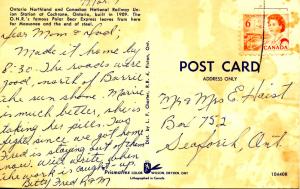 Ontario Northland and Canadian National Railway Un-
ion Station at Cochrane, Ontario, built in 1909. The
O.N.R.'s famous Polar Bear Express leaves from here
for Moosonee and the end of steel.
Dear Mom & Hool,
Made it home by
8:30. The roads were
good, north of Barrie
the sun shone. Marie is
much better, she is
taking her pills. Two
since we got home
Fred is staying out of them
now. Will write when
the work is caught up.
Betty Fred R & M
POST CARD
ADDRESS ONLY
6
CANADA
Mr & Mrs E Haist
Box 752
Seaforth, Ont.
Prismatone COLOR WILSON, DRYDEN, ONT.
Lithographed in Canada
106408